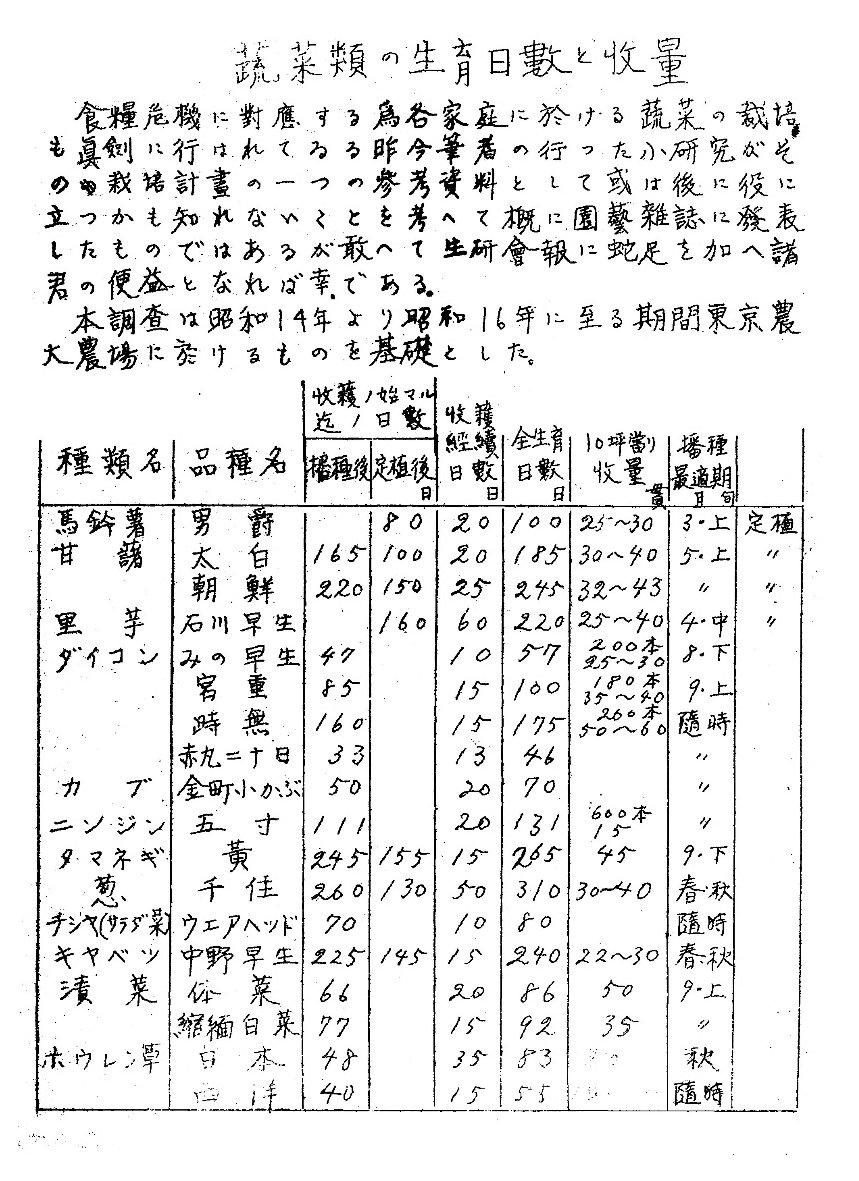 蔬菜類の生育日數と收量
食糧危機に對應する爲各家庭に於ける蔬菜の栽培
も眞劍に行はれてゐる昨今筆者の行った小研究がそ
の栽培計畫の一つの參考資料として或は後に役に
立つかも知れないことを考へて概に園藝雜誌に發表
したものではあるが敢へて生研會報に蛇足を加へ諸
君の便益となれば幸である。
本調査は昭和14年より昭和16年に至る期間東京農
大農場に於けるものを基礎とした。
種類名 品種名 收穫ノ始マル迄ノ日數 播種後 定植後日 收穫經續日數日 全生育日數日 10坪當リ收量貫 播種最適期月旬
馬鈴薯 男爵 80 20 100 25~30 3·上 定植
甘藷 太白 165 100 20 185 30~40 5·上 〃
朝鮮 220 150 25 245 32~43 〃 〃
里芋 石川早生 160 60 220 25~40 4·中 〃
ダイコン みの早生 47 10 57 200本 25~30 8·下
宮重 85 15 100 180本 35~40 9·上
時無 160 15 175 260本 50~60 隨時
赤丸二十日 33 13 46 〃
カブ 金町小かぶ 50 20 70 〃
ニンジン 五寸 111 20 131 600本 15 〃
タマネギ 黃 245 155 15 265 45 9·下
葱 千住 260 130 50 310 30~40 春·秋
チシャ(サラダ菜) ウエアヘッド 70 10 80 隨時
キャベツ 中野早生 225 145 15 240 22~30 春·秋
漬菜 体菜 66 20 86 50 9·上
縮緬白菜 77 15 92 35 〃
ホウレン草 日本 48 35 83 秋
西洋 40 15 55 隨時